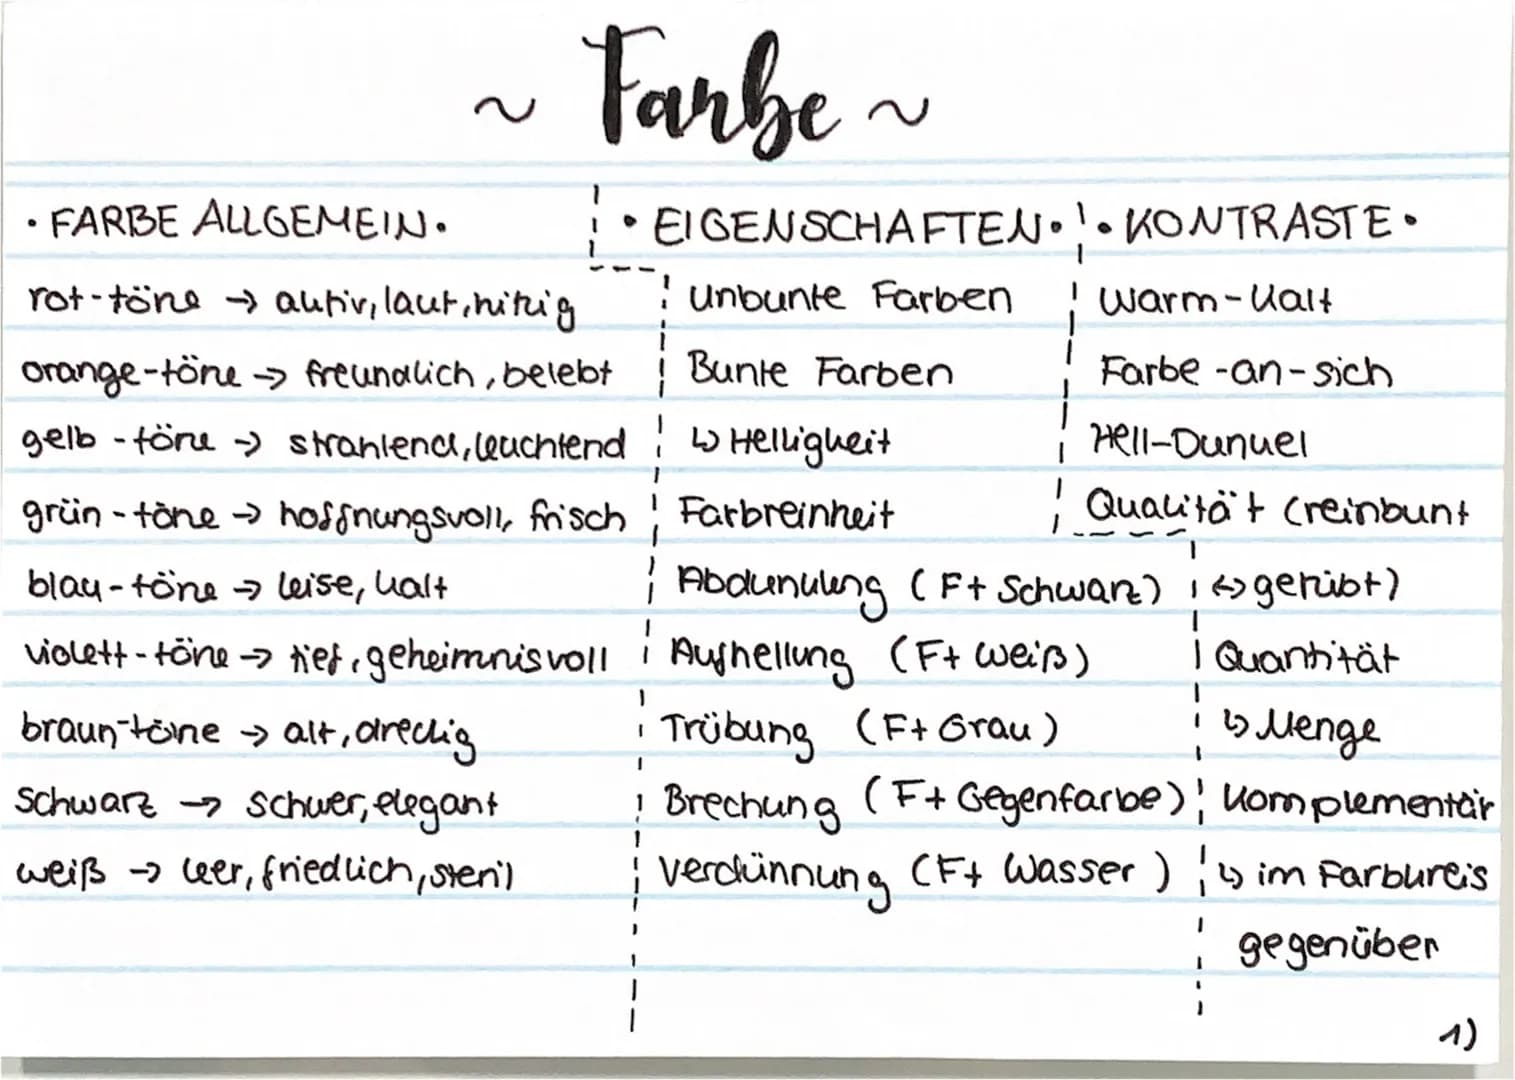 ~ Farbe ~
• FARBE ALLGEMEIN •
rot-töne → aktiv, laut, hitzig
orange-töne → freundlich, belebt
gelb-töne → strahlend, leuchtend
grün-töne → hoffnungsvoll, frisch
blau-töne → leise, kalt
violett-töne → tief, geheimnisvoll
braun-töne → alt, dreckig
Schwarz → schwer, elegant
weiß → leer, friedlich, steril
• EIGENSCHAFTEN •
Unbunte Farben
Bunte Farben
↳ Helligkeit
Farbreinheit
Abdunklung (F+ Schwarz)
Aufhellung (F+ weiß)
Trübung (F+ Grau)
Brechung (F+ Gegenfarbe)
Verdünnung (F+ Wasser)
• KONTRASTE •
Warm-Kalt
Farbe-an-sich
Hell-Dunkel
Qualität (reinbunt
↔ getrübt)
Quantität
↳ Menge
Komplementär
↳ im Farbkreis
gegenüber
1)